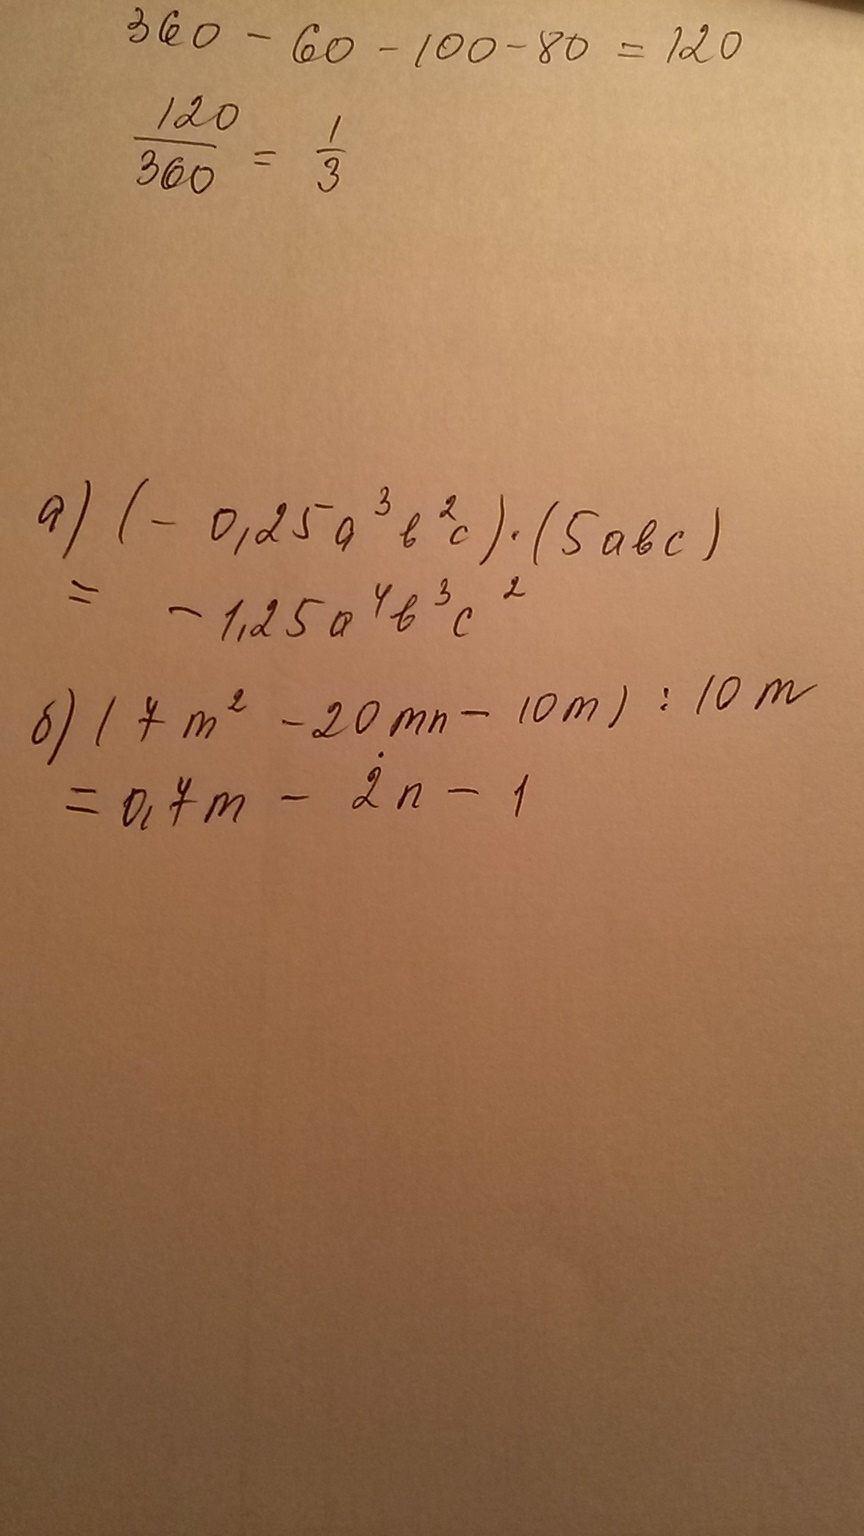 360 - 60 - 100 - 80 = 120
120/360 = 1/3
а) (- 0,25a³b²c)·(5abc)
= -1,25a⁴b³c²
б) (7m² - 20mn - 10m) : 10m
= 0,7m - 2n - 1